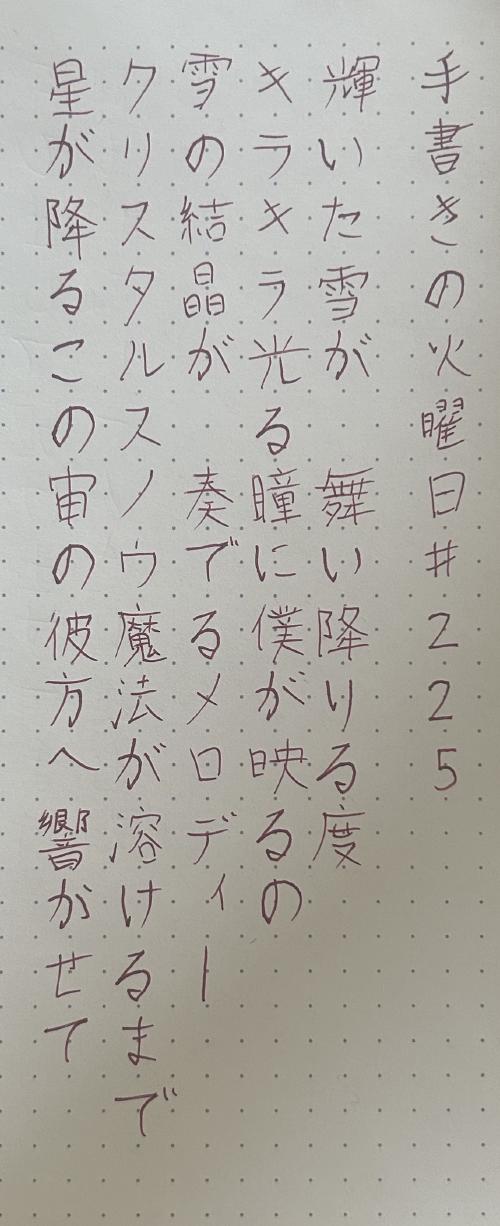 手書きの火曜日#225
輝いた雪が 舞い降りる度
キラキラ光る瞳に僕が映るの
雪の結晶が 奏でるメロディー
クリスタルスノウ魔法が溶けるまで
星が降るこの宙の彼方へ響かせて